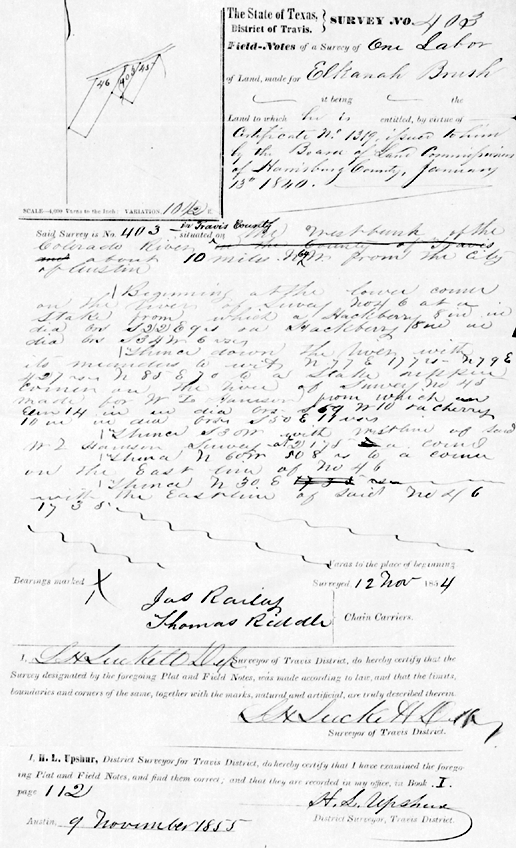 The State of Texas,
District of Travis.
SURVEY NO. 403
Field-Notes of a Survey of One Labor
of Land, made for Elkanah Brush
it being the
Land to which he is entitled, by virtue of
Certificate No. 1319, issued to him
by the Board of Land Commissioners
of Harrisburg County, January
13th 1840.
46 403 45
SCALE—4,000 Varas to the Inch: VARIATION,
Said Survey is No. 403 in Travis County situated on the West bank of the
Colorado River in the County of Travis
and about 10 miles N W from the City
of Austin
Beginning at the lower corner
on the river of Survey No 46 at a
Stake from which a Hackberry 8 in in
dia brs S 22 E 9 vrs a Hackberry 18 in in
dia brs S 34 W 6 vrs
Thence down the river with
its meanders to wit N 77 E 177 vrs N 79 E
427 vrs N 85 E to a stake upper
corner on the river of Survey No 45
made for from which an
Elm 14 in in dia brs W 10 vrs a Cherry
10 in in dia brs S 50 E 11 vrs
Thence S 30 W with west line of said
Survey 2178 a corner
Thence N 60 W 508 vrs to a corner
on the East line of No 46
Thence N 30 E
with the East line of said No 46
1735
Varas to the place of beginning
Bearings marked X Surveyed, 12 Nov 1854
Jas
Thomas Riddle
Chain Carriers.
I, S H Luckett D Surveyor of Travis District, do hereby certify that the
Survey designated by the foregoing Plat and Field Notes, was made according to law, and that the limits,
boundaries and corners of the same, together with the marks, natural and artificial, are truly described therein.
S H Luckett D
Surveyor of Travis District.
I, H. L. Upshur, District Surveyor for Travis District, do hereby certify that I have examined the forego-
ing Plat and Field Notes, and find them correct; and that they are recorded in my office, in Book I.
page 112
H. L. Upshur
Austin, 9 November 1855
District Surveyor, Travis District.